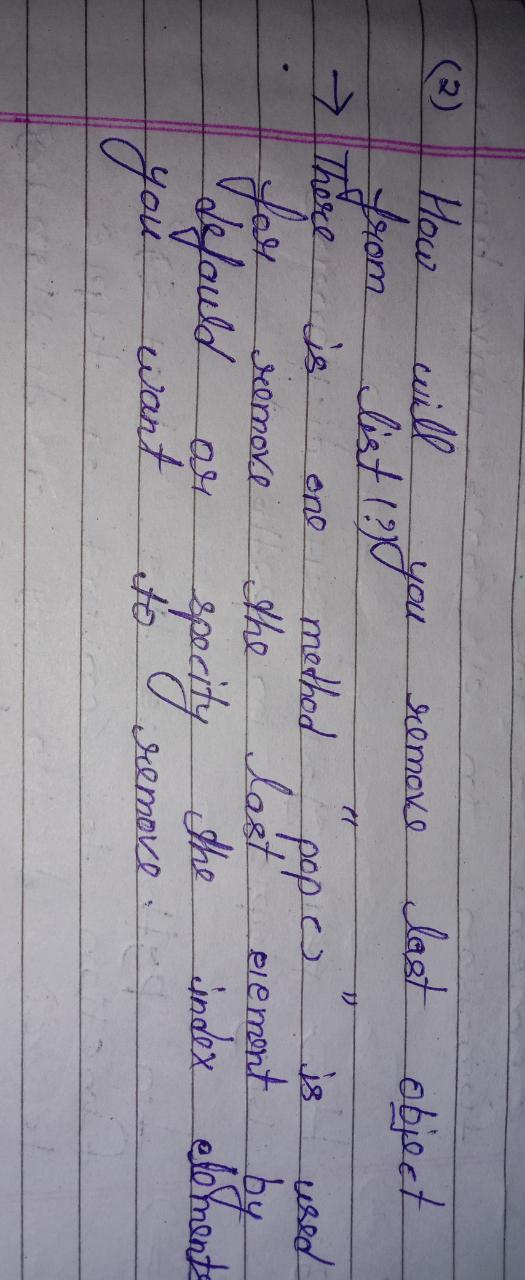 (2) How will you remove last object
from list (?)
→ There is one method "pop()" is used
for remove the last element by
defauld or specity the index elements
you want to remove.